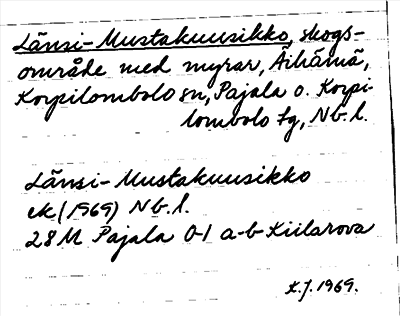 Länsi-Mustakuusikko, skogs-
område med myrar, Äihämä,
Korpilombolo sn, Pajala o. Korpi-
lombolo tg, Nb. l.
Länsi-Mustakuusikko
ek (1969) Nb. l.
28M Pajala 0-1 a-b Kiilarova
K.J. 1969.